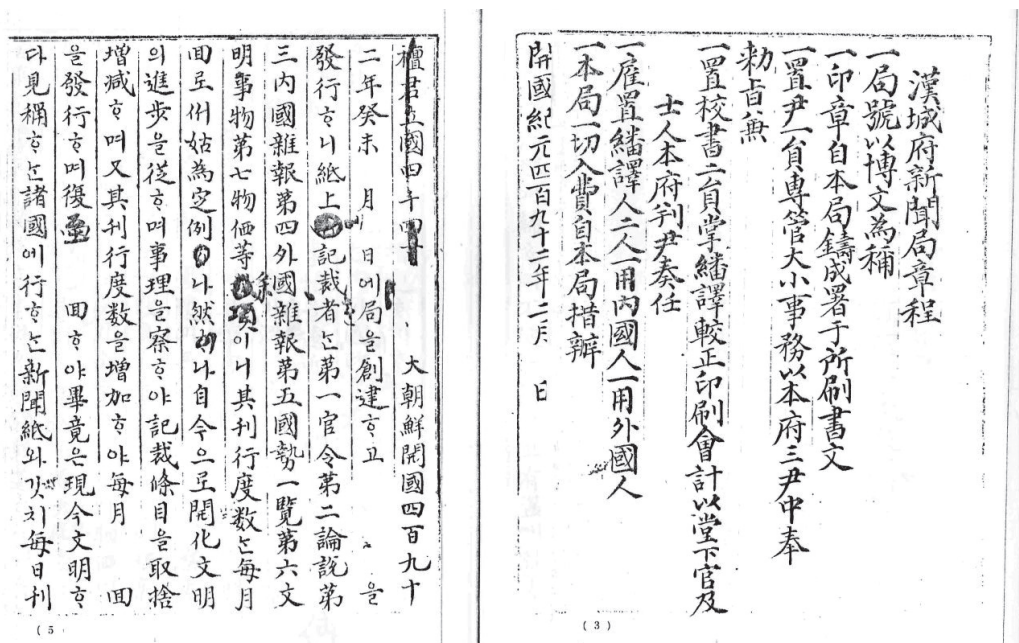 漢城府新聞局章程
一局號以博文為稱
一印章自本局鑄成署于所刷書文
一置尹一貟専管大小事務以本府三尹中奉
勅旨兼
一置校書二貟掌繙譯較正印刷會計以堂下官及
士人本府判尹奏任
一雇置繙譯人二人一用內國人一用外國人
一本局一切入費自本局措辦
開國紀元四百九十二年二月 日
(3)
檀君立國四千四 大朝鮮開國四百九十
二年癸未 月 日에局을創建ᄒᆞ고 을
發行ᄒᆞ니紙上 記裁者ᄂᆞᆫ第一官令第二論說第
三內國雜報第四外國雜報第五國勢一覽第六文
明事物第七物価等 項이니其刊行度数ᄂᆞᆫ每月
回로 姑為定例 나然 나自今으로開化文明
의進步을從ᄒᆞ며事理을察ᄒᆞ야記裁條目을取捨
增减ᄒᆞ며又其刊行度数을增加ᄒᆞ야每月 回
을發行ᄒᆞ며復 回ᄒᆞ야畢竟은現今文明ᄒᆞ
다見稱ᄒᆞᄂᆞᆫ諸國에行ᄒᆞᄂᆞᆫ新聞紙와갓치每日刊
(5